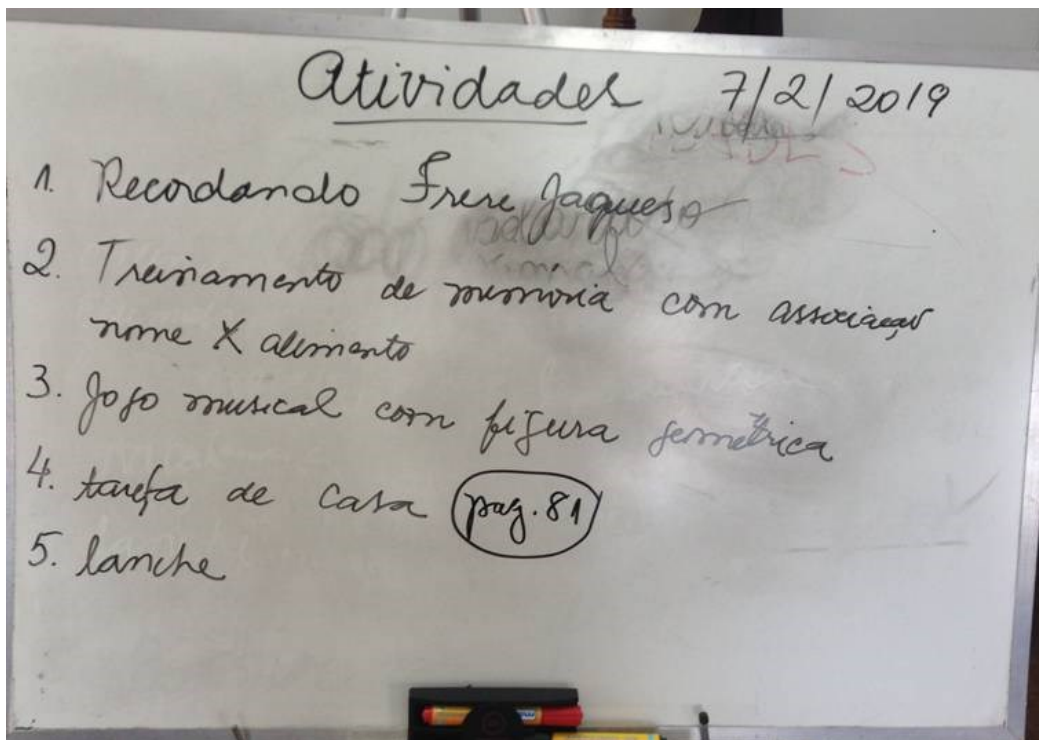 Atividades 7/2/2019
1. Recordando Frere Jaques
2. Treinamento de memoria com associação
nome X alimento
3. Jogo musical com figura geométrica
4. tarefa de casa (pag. 81)
5. lanche